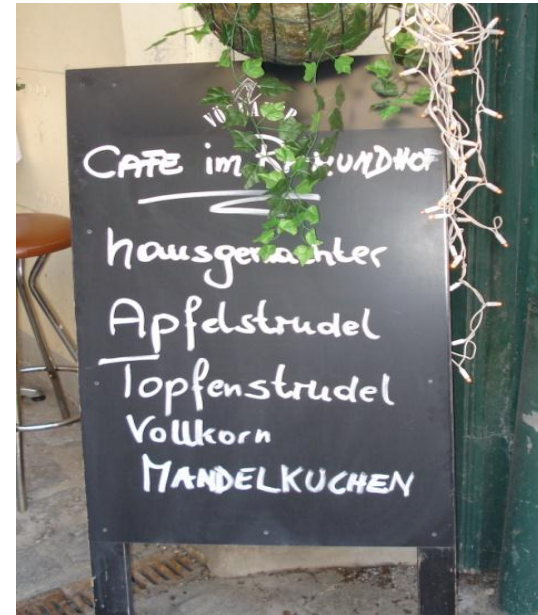 CAFE im RAIMUNDHOF
hausgemachter
Apfelstrudel
Topfenstrudel
Vollkorn
MANDELKUCHEN